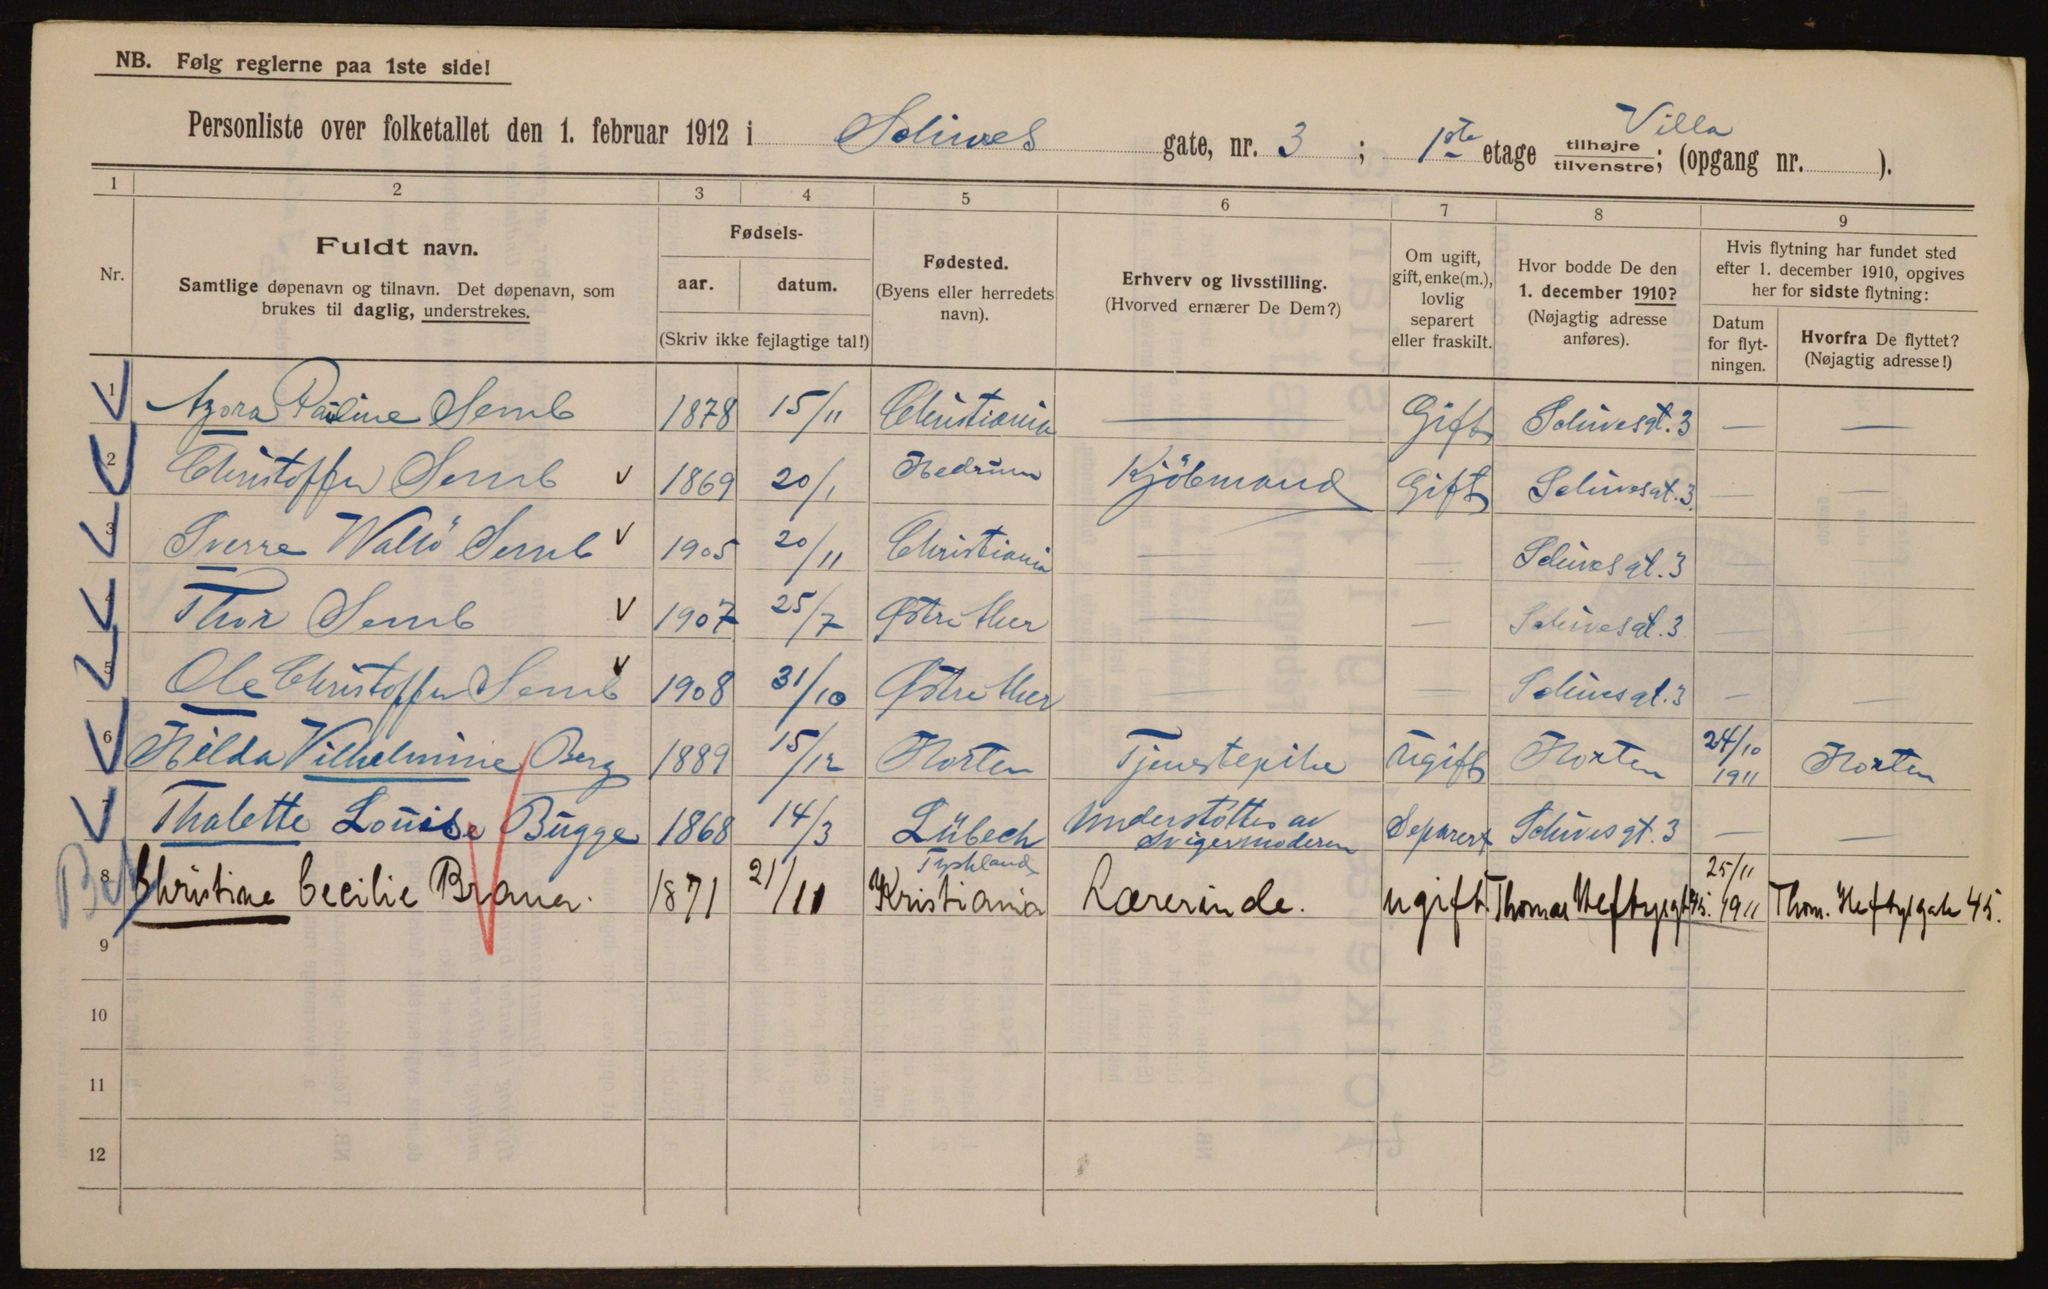 NB. Følg reglerne paa 1ste side!
Personliste over folketallet den 1. februar 1912 i Schives gate, nr. 3 ; 1ste etage tilhøjre tilvenstre; (opgang nr. ).
Villa
1 2 3 4 5 6 7 8 9
Nr.
Fuldt navn.
Samtlige døpenavn og tilnavn. Det døpenavn, som
brukes til daglig, understrekes.
Fødsels-
aar. datum.
(Skriv ikke fejlagtige tal!)
Fødested.
(Byens eller herredets
navn).
Erhverv og livsstilling.
(Hvorved ernærer De Dem?)
Om ugift,
gift, enke(m.),
lovlig
separert
eller fraskilt.
Hvor bodde De den
1. december 1910?
(Nøjagtig adresse
anføres).
Hvis flytning har fundet sted
efter 1. december 1910, opgives
her for sidste flytning:
Datum
for flyt-
ningen.
Hvorfra De flyttet?
(Nøjagtig adresse!)
1 Azora Pauline Semb 1878 15/11 Christiania — Gift Schivesgt. 3 — —
2 Christoffer Semb v 1869 20/1 Hedrum Kjöbmand Gift Schivesgt. 3 — —
3 Sverre Wallö Semb v 1905 20/11 Christiania — — Schivesgt. 3 — —
4 Thor Semb v 1907 25/7 Østre Aker — — Schivesgt. 3 — —
5 Ole Christoffer Semb v 1908 31/10 Østre Aker — — Schivesgt. 3 — —
6 Hilda Vilhelmine Berg 1889 15/12 Horten Tjenestepike Ugift Horten 24/10 1911 Horten
7 Thalette Louise Bugge 1868 14/3 Lübech Tyskland Understöttes av Svigermoderen Separert Schivesgt. 3 — —
8 Christiane Cecilie Braner. 1871 21/11 Kristiania Lærerinde. ugift Thomas Heftyesgt 45. 25/11 1911 Thom. Heftyesgate 45.
9
10
11
12